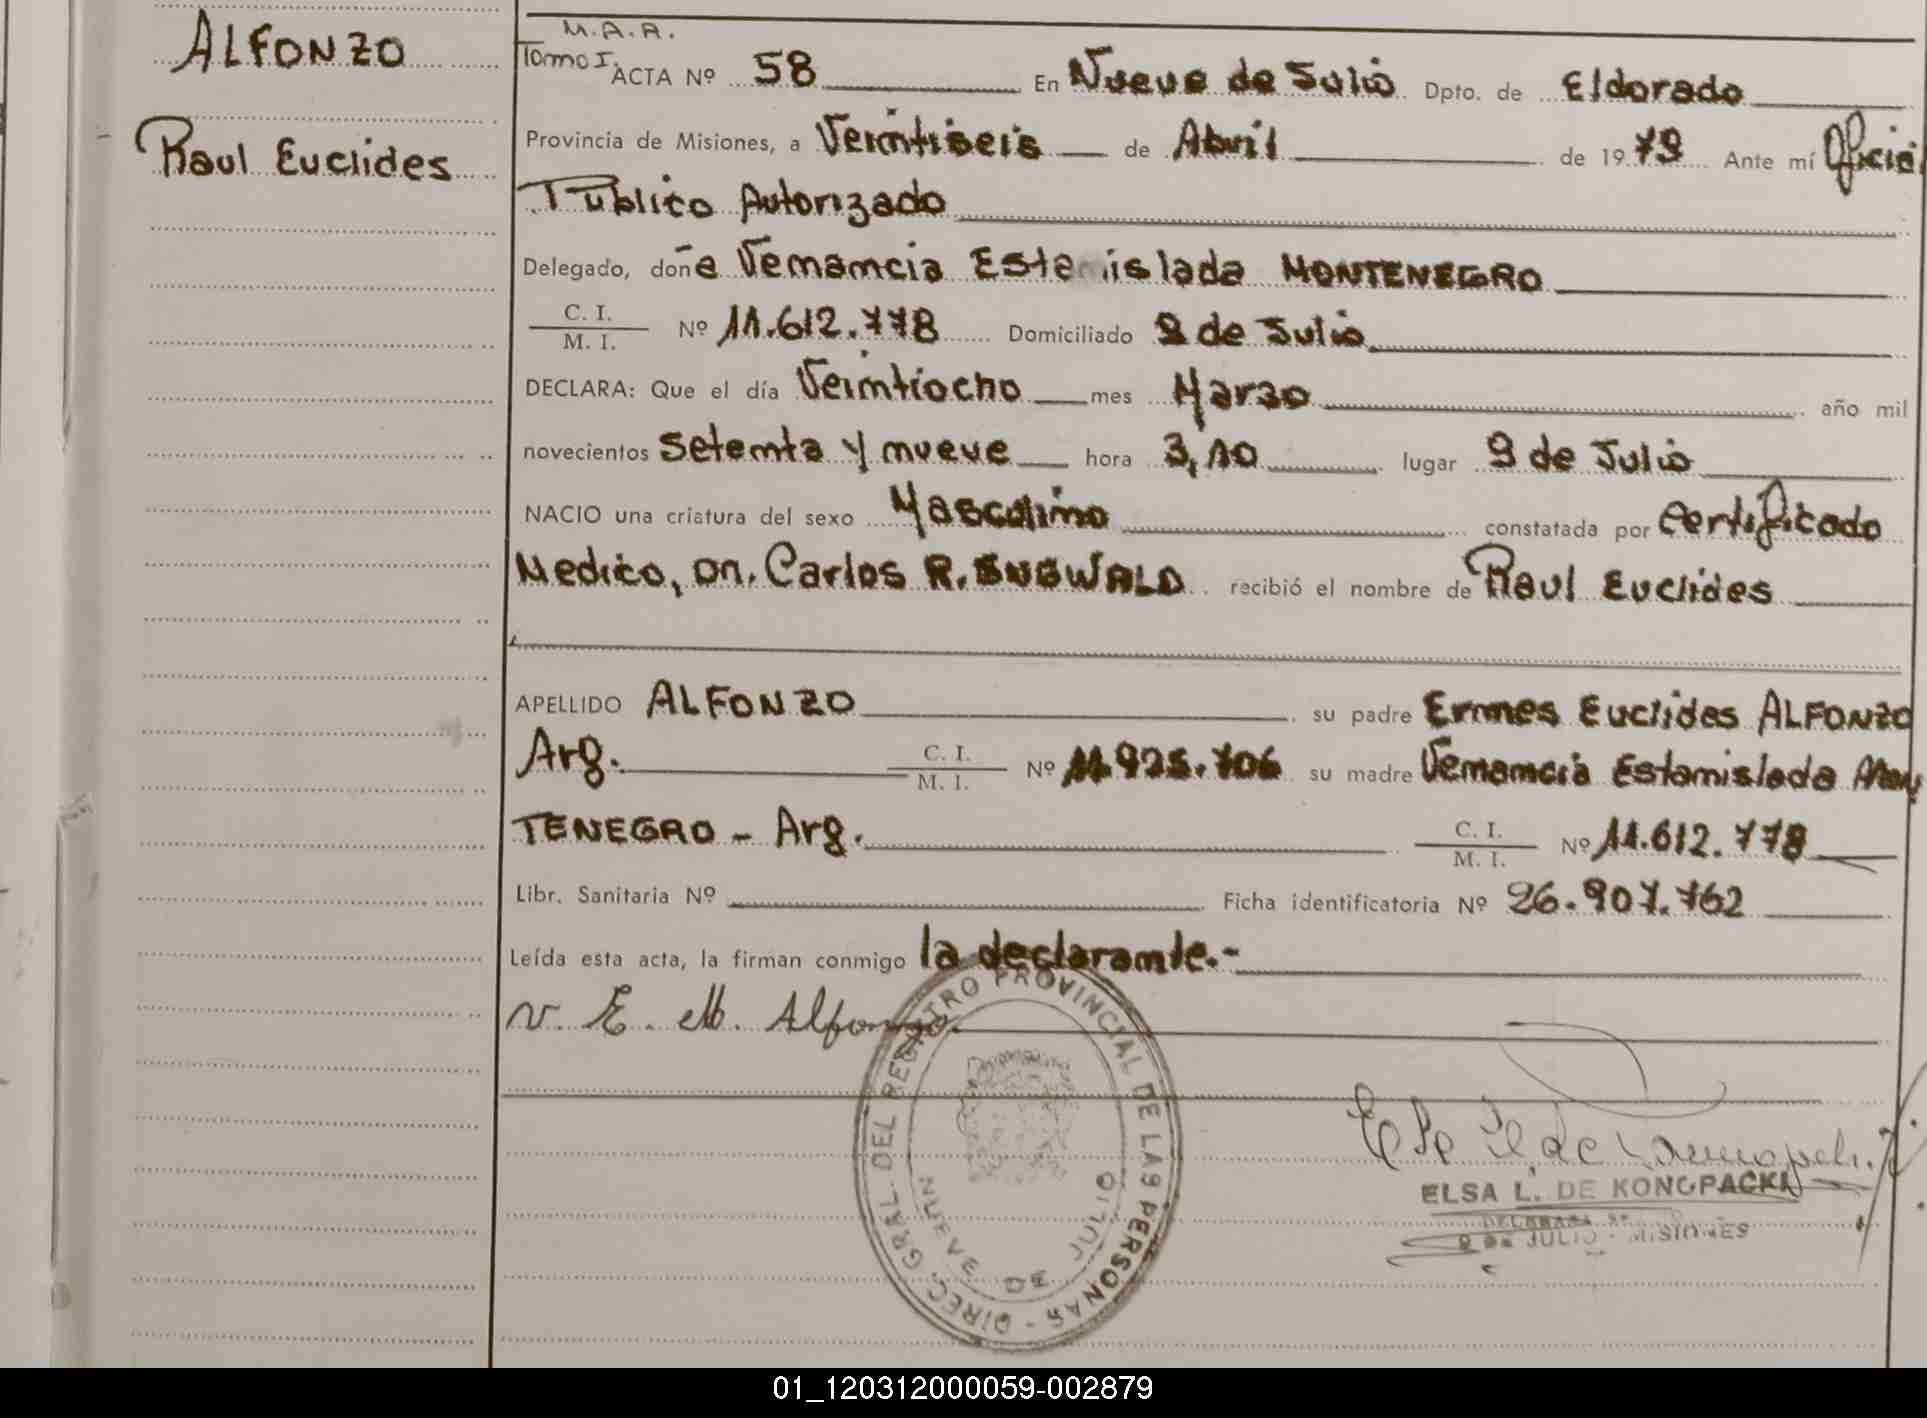 ALFONZO
Raul Euclides
M.A.A.
Tomo I. ACTA Nº 58 En Nueve de Julio Dpto. de Eldorado
Provincia de Misiones, a Veintiseis de Abril de 1979 Ante mí Oficial
Publico Autorizado
Delegado, doña Venancia Estanislada MONTENEGRO
C. I.
M. I. Nº 11.612.778 Domiciliado 9 de Julio
DECLARA: Que el día Veintiocho mes Marzo año mil
novecientos setenta y nueve hora 3,10 lugar 9 de Julio
NACIO una criatura del sexo Masculino constatada por certificado
Medico, Dn. Carlos R. recibió el nombre de Raul Euclides
APELLIDO ALFONZO su padre Ermes Euclides ALFONZO
Arg. C. I.
M. I. Nº 11.925.706 su madre Venancia Estanislada MON
TENEGRO - Arg. C. I.
M. I. Nº 11.612.778
Libr. Sanitaria Nº Ficha identificatoria Nº 26.907.762
Leída esta acta, la firman conmigo la declarante.-
V. E. M. Alfonzo
DIREC. GRAL. DEL REGISTRO PROVINCIAL DE LAS PERSONAS -
NUEVE DE JULIO
ELSA L. DE KONOPACKI
9 DE JULIO - MISIONES
01_120312000059-002879